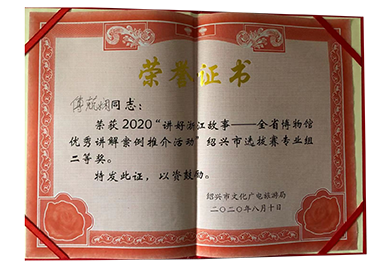 荣誉证书
傅 同志：
荣获2020“讲好浙江故事——全省博物馆
优秀讲解案例推介活动”绍兴市选拔赛专业组
二等奖。
特发此证，以资鼓励。
绍兴市文化广电旅游局
二〇二〇年八月十日